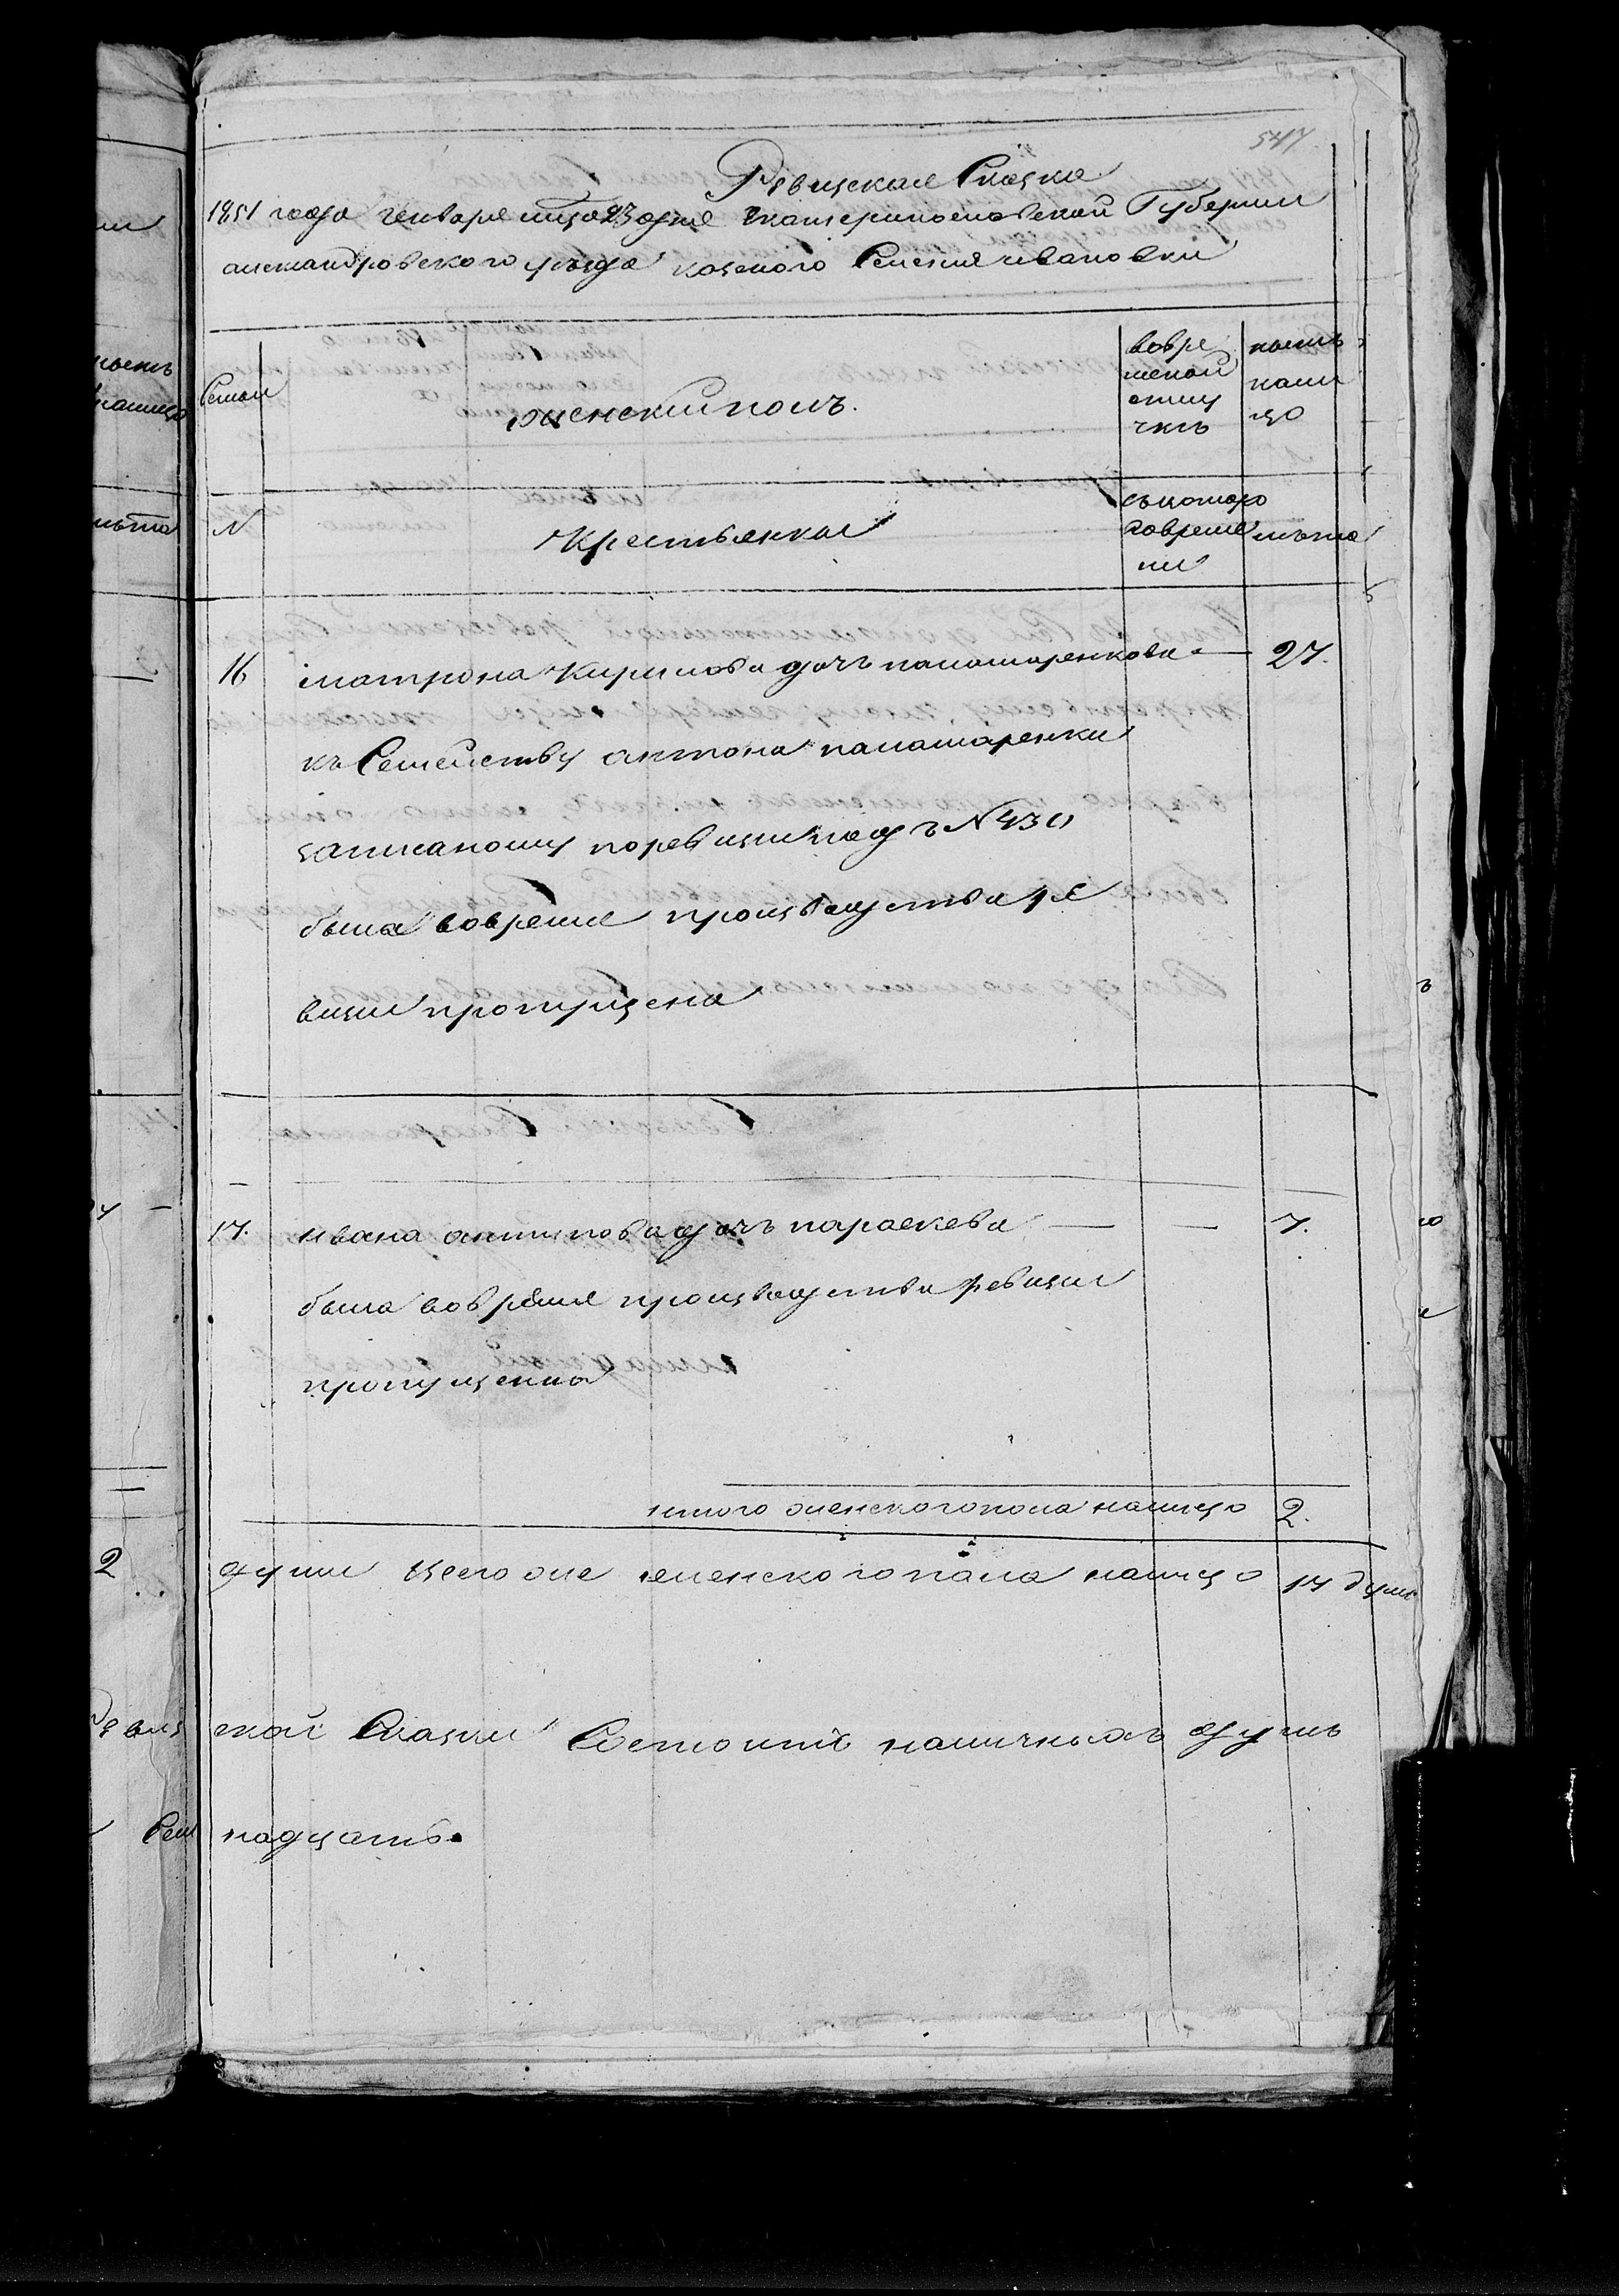 547
Ревизская Сказка
1851 года Генваря мца 23 дня Екатеринославской Губернии
александровского уезда казеного Селения ивановки
Семьи
женский полъ.
вовре
меной
отлу
чкъ
ныетъ
нали
цо
N
Крестьянкы
съкоторо
говреме
ни
лъта
16
матрона Кирилова дочъ паламаренкова — 27.
къ Семейству антона паламаренки
записаному поревизии подъ N 430
была вовремя производства ре
визии пропущена
17.
ивана антипова дочъ параскева — — 7.
была вовремя производства ревизии
пропущенна
итого женскогопола налицо 2.
души всего же женского пола налицо 17 душъ
ской Сказки Состоитъ наличныхъ душъ
надцать.